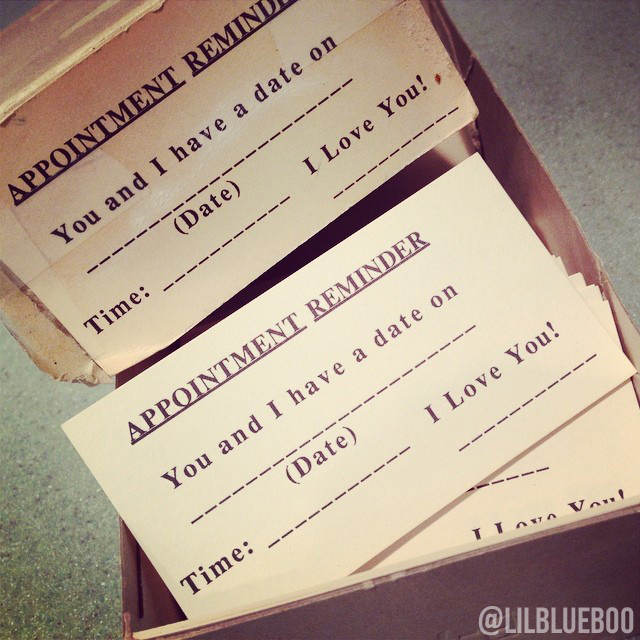 APPOINTMENT REMINDE
You and I have a date on
(Date)
I Love You!
Time:
APPOINTMENT REMINDER
You and I have a date on
(Date)
I Love You!
Time:
I Love You!
@LILBLUEBOO